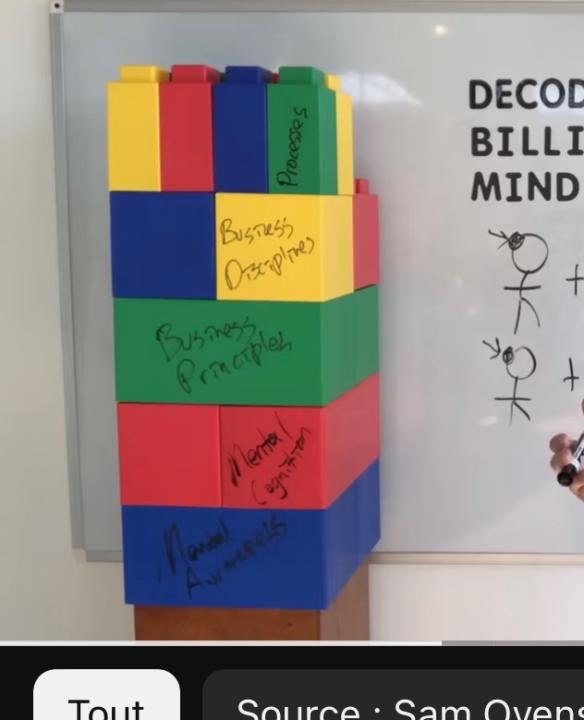 Processes
Business
Disciplines
Business
Principles
Mental
Cognition
Mental
Awareness
DECOD
BILLI
MIND
+
+
Tout
Source : Sam Ovens